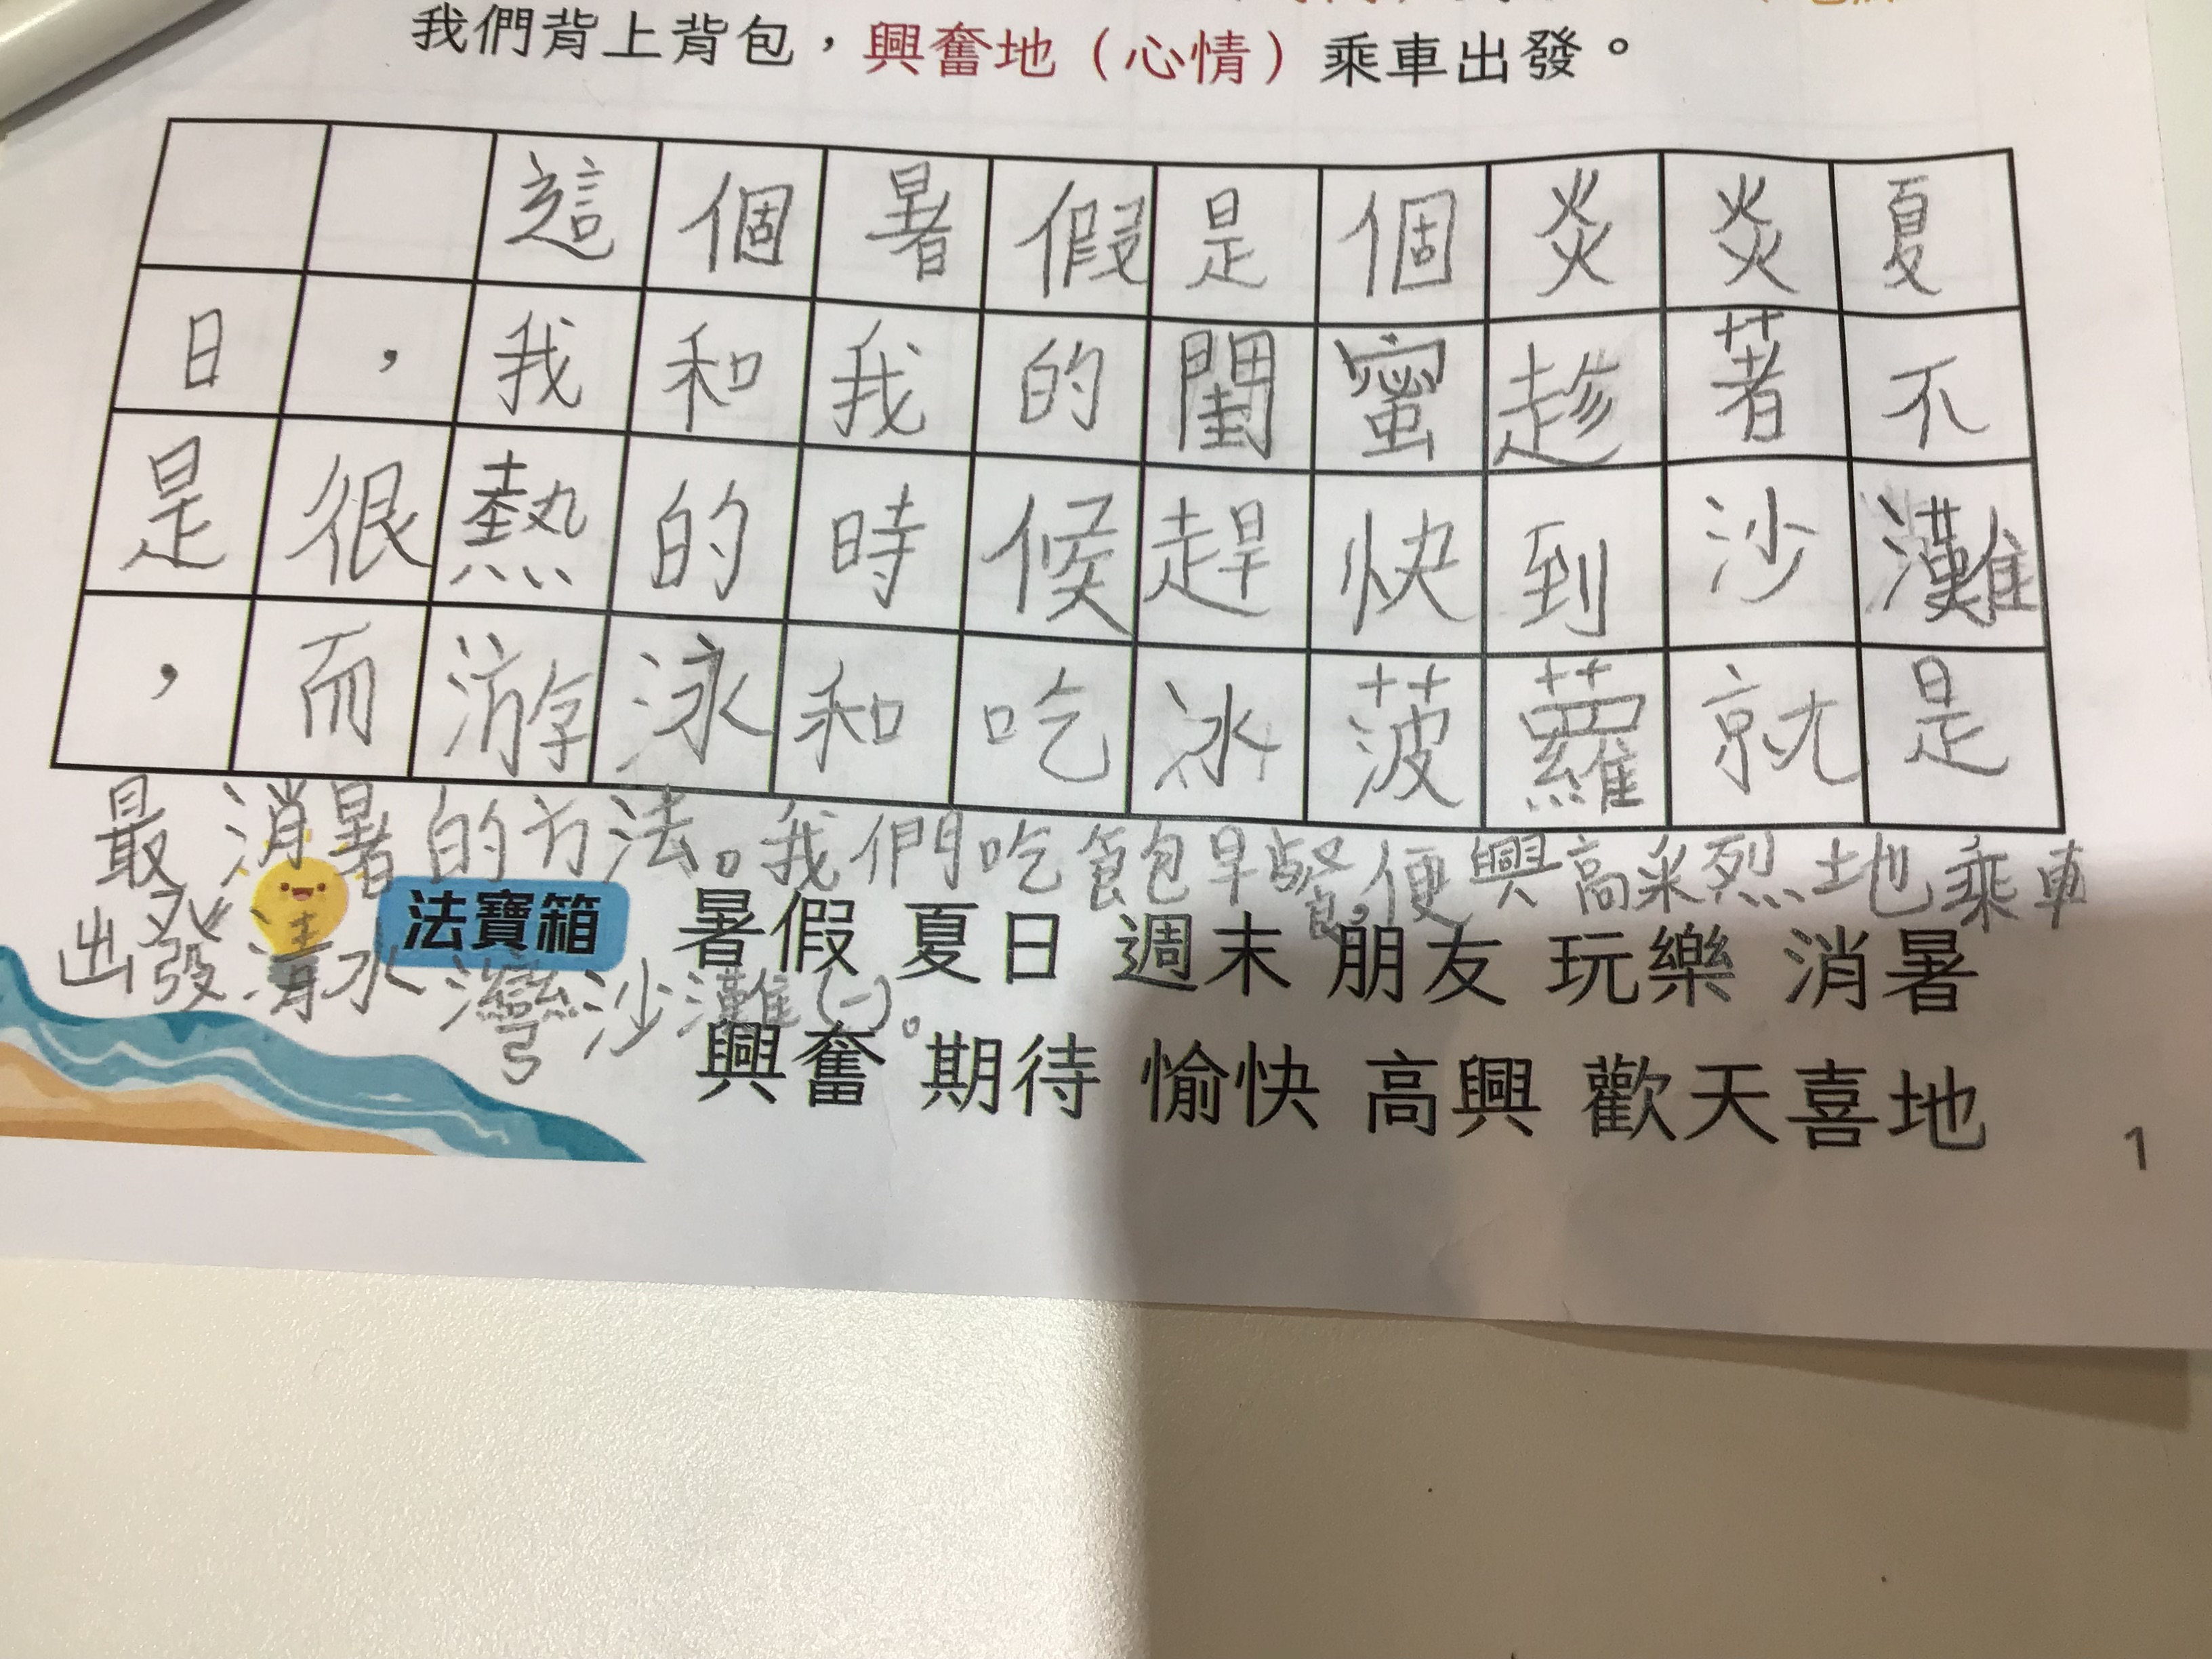 我們背上背包，興奮地（心情）乘車出發。
這個暑假是個炎炎夏
日，我和我的閨蜜趁著不
是很熱的時候趕快到沙灘
，而游泳和吃冰菠蘿就是
最消暑的方法。我們吃飽早餐，便興高采烈地乘車
出發清水灣沙灘(一)。
法寶箱 暑假 夏日 週末 朋友 玩樂 消暑
興奮 期待 愉快 高興 歡天喜地
1